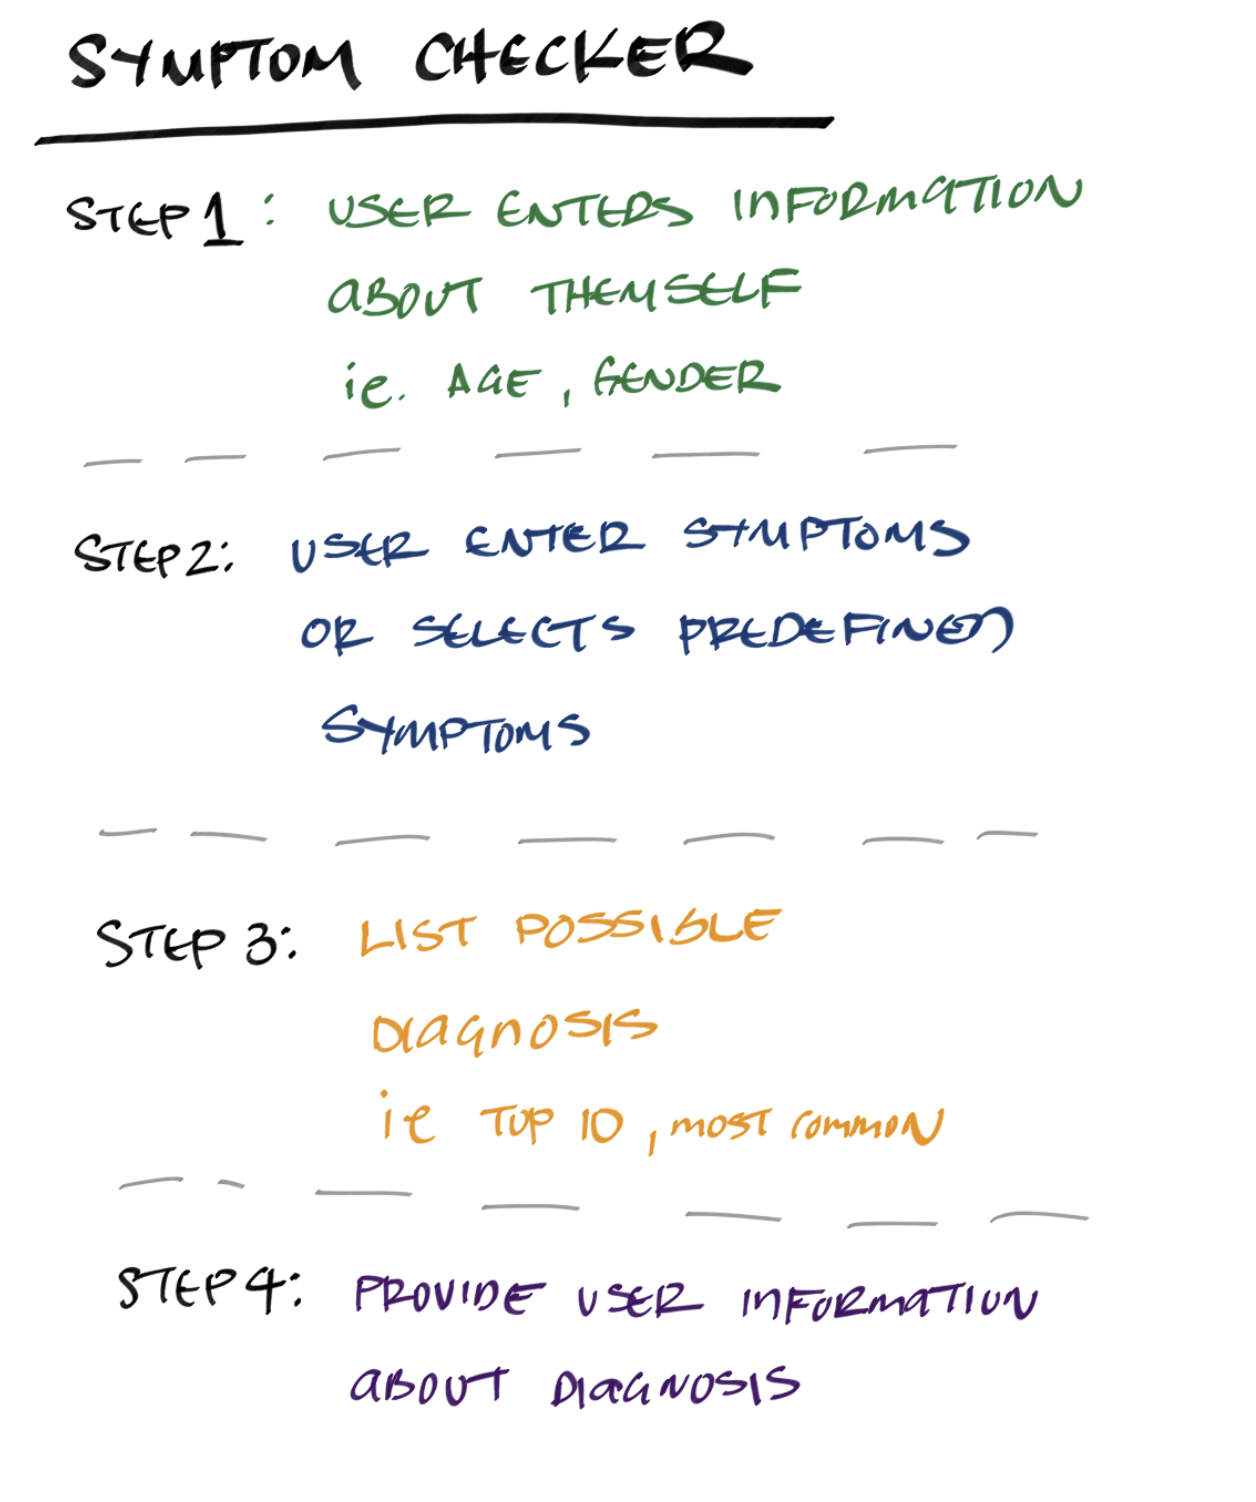 SYMPTOM CHECKER
STEP 1: USER ENTERS INFORMATION
ABOUT THEMSELF
ie. AGE, GENDER
STEP 2: USER ENTER SYMPTOMS
OR SELECTS PREDEFINED
SYMPTOMS
STEP 3: LIST POSSIBLE
DIAGNOSIS
ie TOP 10, most common
STEP 4: PROVIDE USER INFORMATION
ABOUT DIAGNOSIS